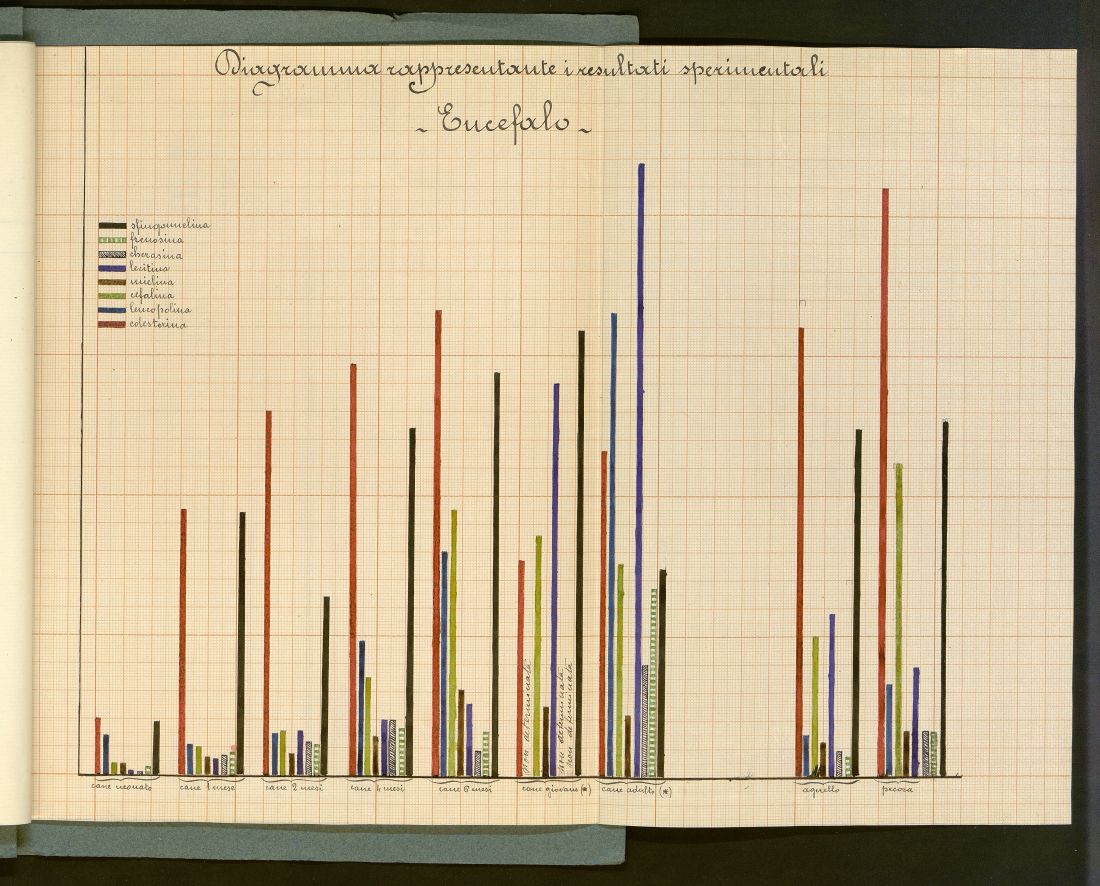 Diagramma rappresentante i resultati sperimentali
~ Encefalo ~
sfingomielina
frenosina
cherasina
lecitina
mielina
cefalina
leucopolina
colesterina
non determinata
non determinata
non determinata
cane neonato
cane 1 mese
cane 2 mesi
cane 4 mesi
cane 6 mesi
cane giovane (*)
cane adulto (*)
agnello
pecora